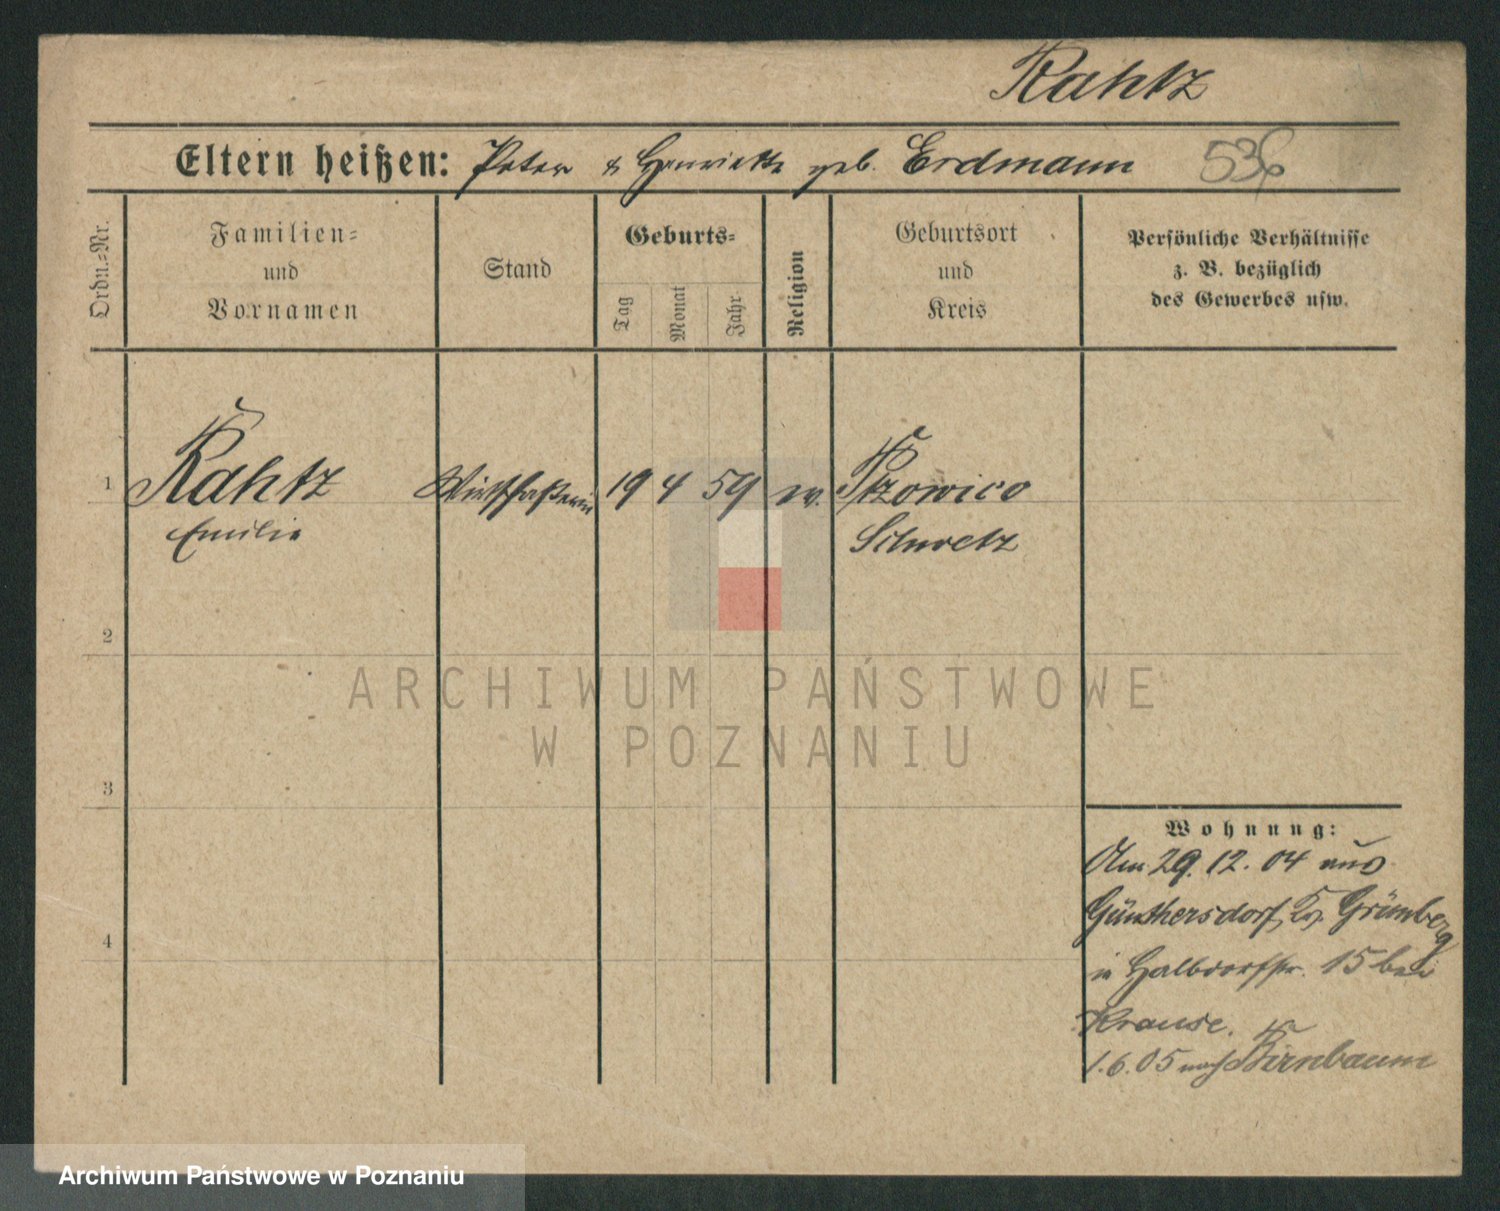 Rahtz
Eltern heißen: Peter & Henriette geb. Erdmann 536
Ordn.-Nr.
Familien-
und
Vornamen
Stand
Geburts-
Tag
Monat
Jahr
Religion
Geburtsort
und
Kreis
Persönliche Verhältnisse
z. B. bezüglich
des Gewerbes usw.
1 Rahtz Wirtschafterin 19 4 59 ev.
Emilie Schwetz
2
3
4
Wohnung:
Am 29. 12. 04 aus
Günthersdorf, Kr. Grünberg
in Halbdorfstr. 15 bei
Krause.
1. 6. 05 nach Birnbaum
ARCHIWUM PAŃSTWOWE
W POZNANIU
Archiwum Państwowe w Poznaniu